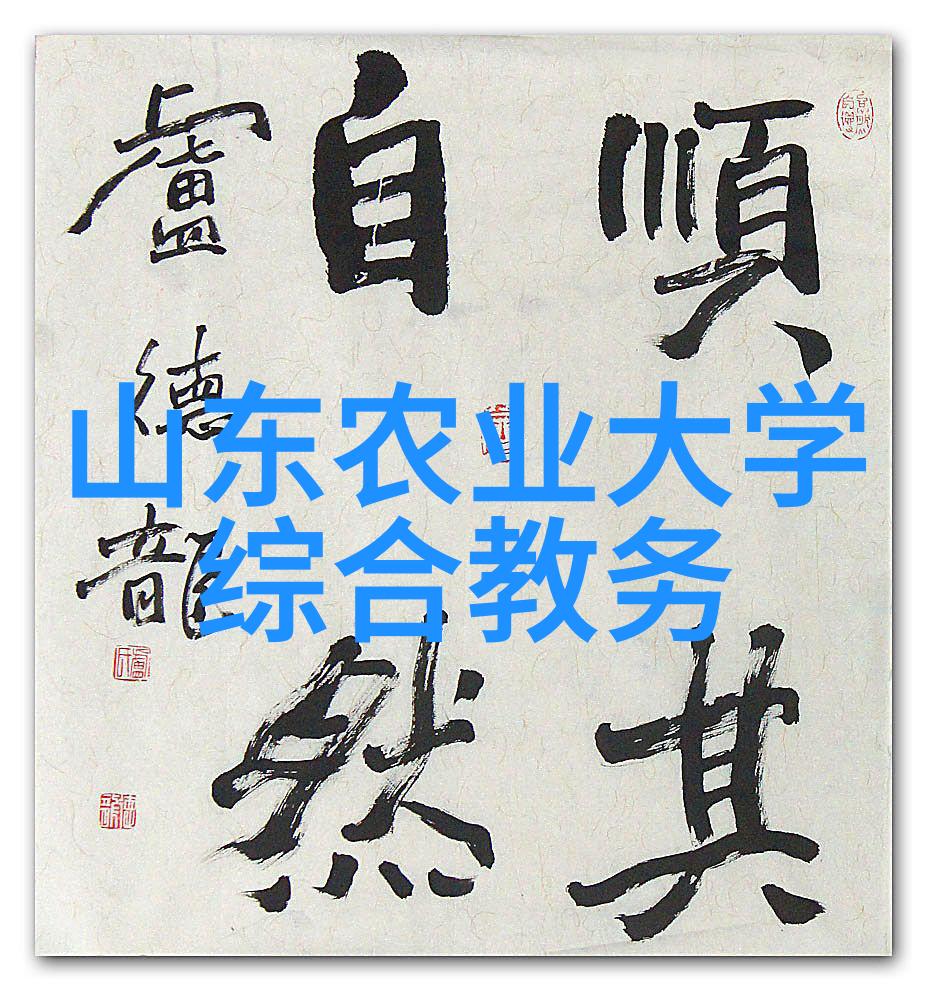 順其
自然
盧德龍
山东农业大学
综合教务